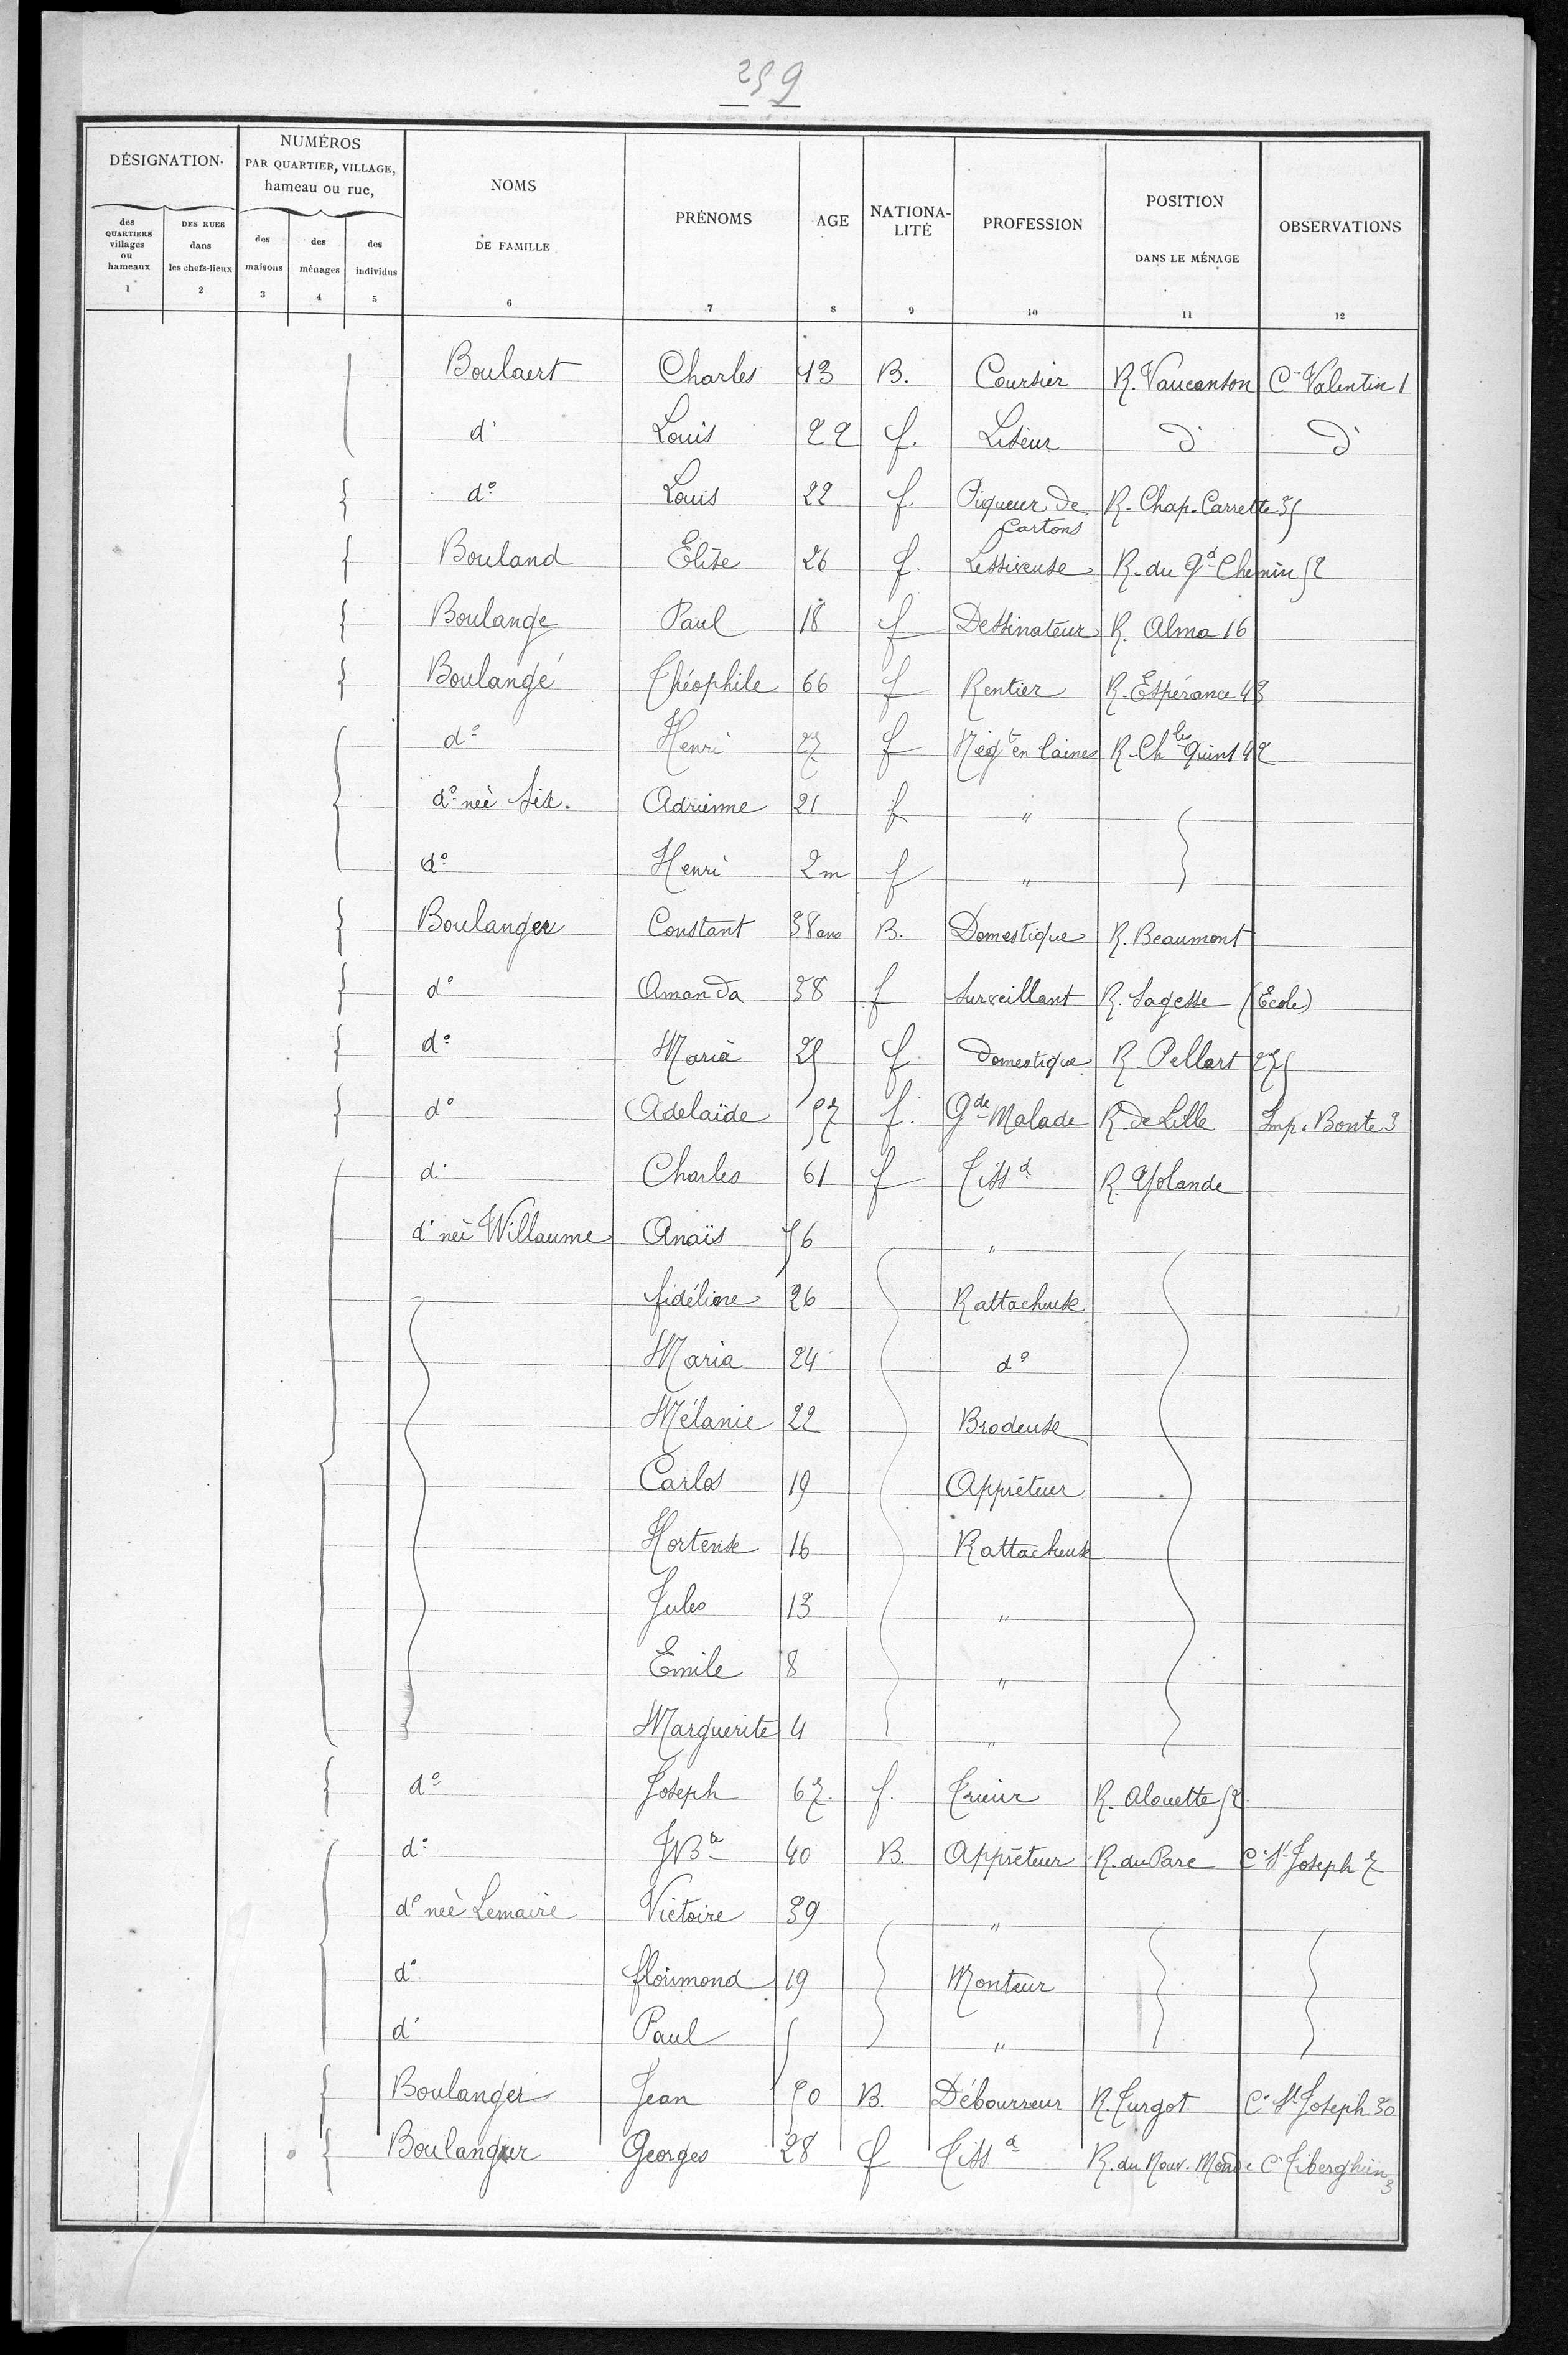 259
DÉSIGNATION
NUMÉROS PAR QUARTIER, VILLAGE, hameau ou rue,
des QUARTIERS villages ou hameaux 1
DES RUES dans les chefs-lieux 2
des maisons 3
des ménages 4
des individus 5
NOMS DE FAMILLE 6
PRÉNOMS 7
AGE 8
NATIONA-LITÉ 9
PROFESSION 10
POSITION DANS LE MÉNAGE 11
OBSERVATIONS 12
Boulaert Charles 43 B. Coursier R. Vaucanson C^n Valentin 1
d° Louis 22 f. Liseur d° d°
d° Louis 22 f. Piqueur de Cartons R. Chap. Carrette 35
Bouland Elise 26 f. Lessiveuse R. du Gd Chemin 52
Boulange Paul 18 f Dessinateur R. Alma 16
Boulangé Théophile 66 f Rentier R. Espérance 43
d° Henri 27 f Négt en laines R. Chles Quint 42
d° née Six. Adrienne 21 f "
d° Henri 2m f "
Boulanger Constant 38 ans B. Domestique R. Beaumont
d° Amanda 38 f Surveillant R. Sagesse (École)
d° Maria 25 f. Domestique R. Pellart 275
d° Adelaïde 57 f. Gde Malade R. de Lille Imp. Bonte 3
d° Charles 61 f Tissd R. Yolande
d° née Willaume Anaïs 56 "
fidéline 26 Rattacheuse
Maria 24 d°
Mélanie 22 Brodeuse
Carlos 19 Apprêteur
Hortense 16 Rattacheuse
Jules 13 "
Emile 8 "
Marguerite 4 "
d° Joseph 67. f. Trieur R. Alouette 52
d° JBte 40 B. Apprêteur R. du Parc C^r St Joseph 7
d° née Lemaire Victoire 39 "
d° florimond 19 Monteur
d° Paul 5 "
Boulanger Jean 50 B. Débourreur R. Turgot C^r St Joseph 30
Boulangeur Georges 28 f Tissd R. du Nouv. Monde C^r Tiberghien 3